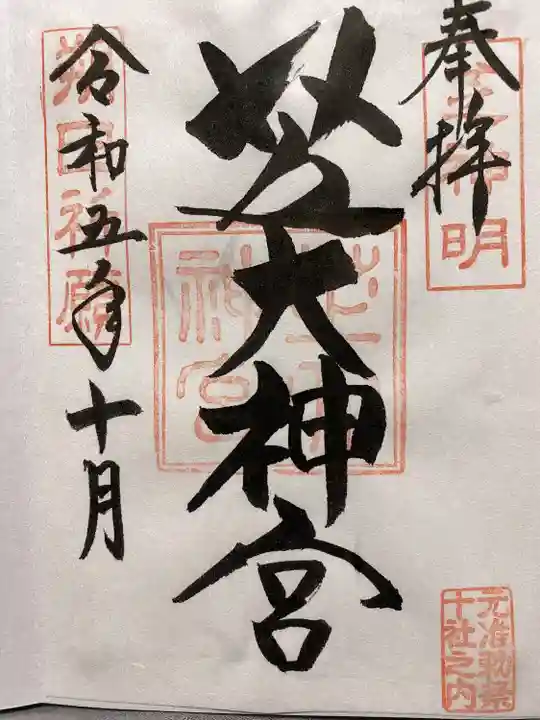 奉拝
芝大神宮
令和五年十月
元准勅祭
十社之内